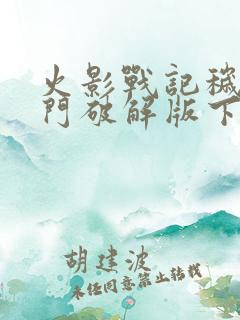 火影戰記穢
門破解版下
胡建波
未任同意禁止转载